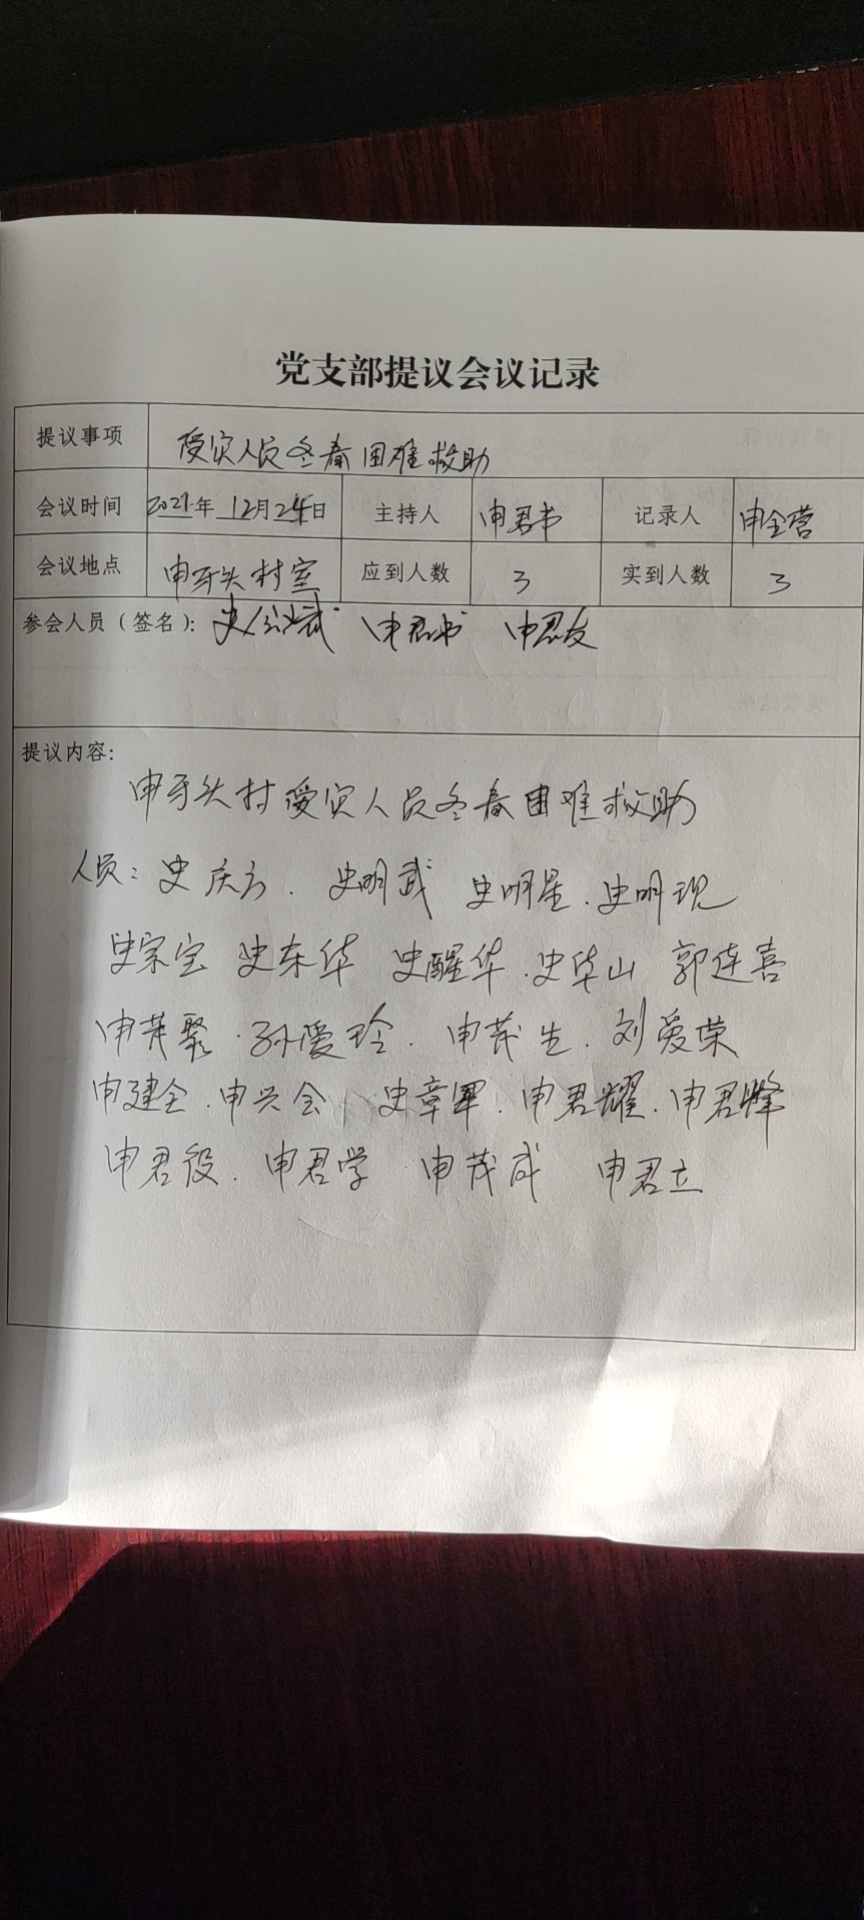 党支部提议会议记录
提议事项 受灾人员冬春困难救助
会议时间 2021年 12月24日 主持人 申君书 记录人 申全营
会议地点 申牙头村室 应到人数 3 实到人数 3
参会人员（签名）： 申君书 申君友
提议内容：
申牙头村受灾人员冬春困难救助
人员：史庆方. 史明武 史明星. 史明现
史宗宝 史东华 史醒华. 史华山 郭连喜
申茂聚. 孙爱玲. 申茂生. 刘爱荣
申建全. 申兴会 史章军. 申君耀. 申君峰
申君役. 申君学 申茂成 申君立